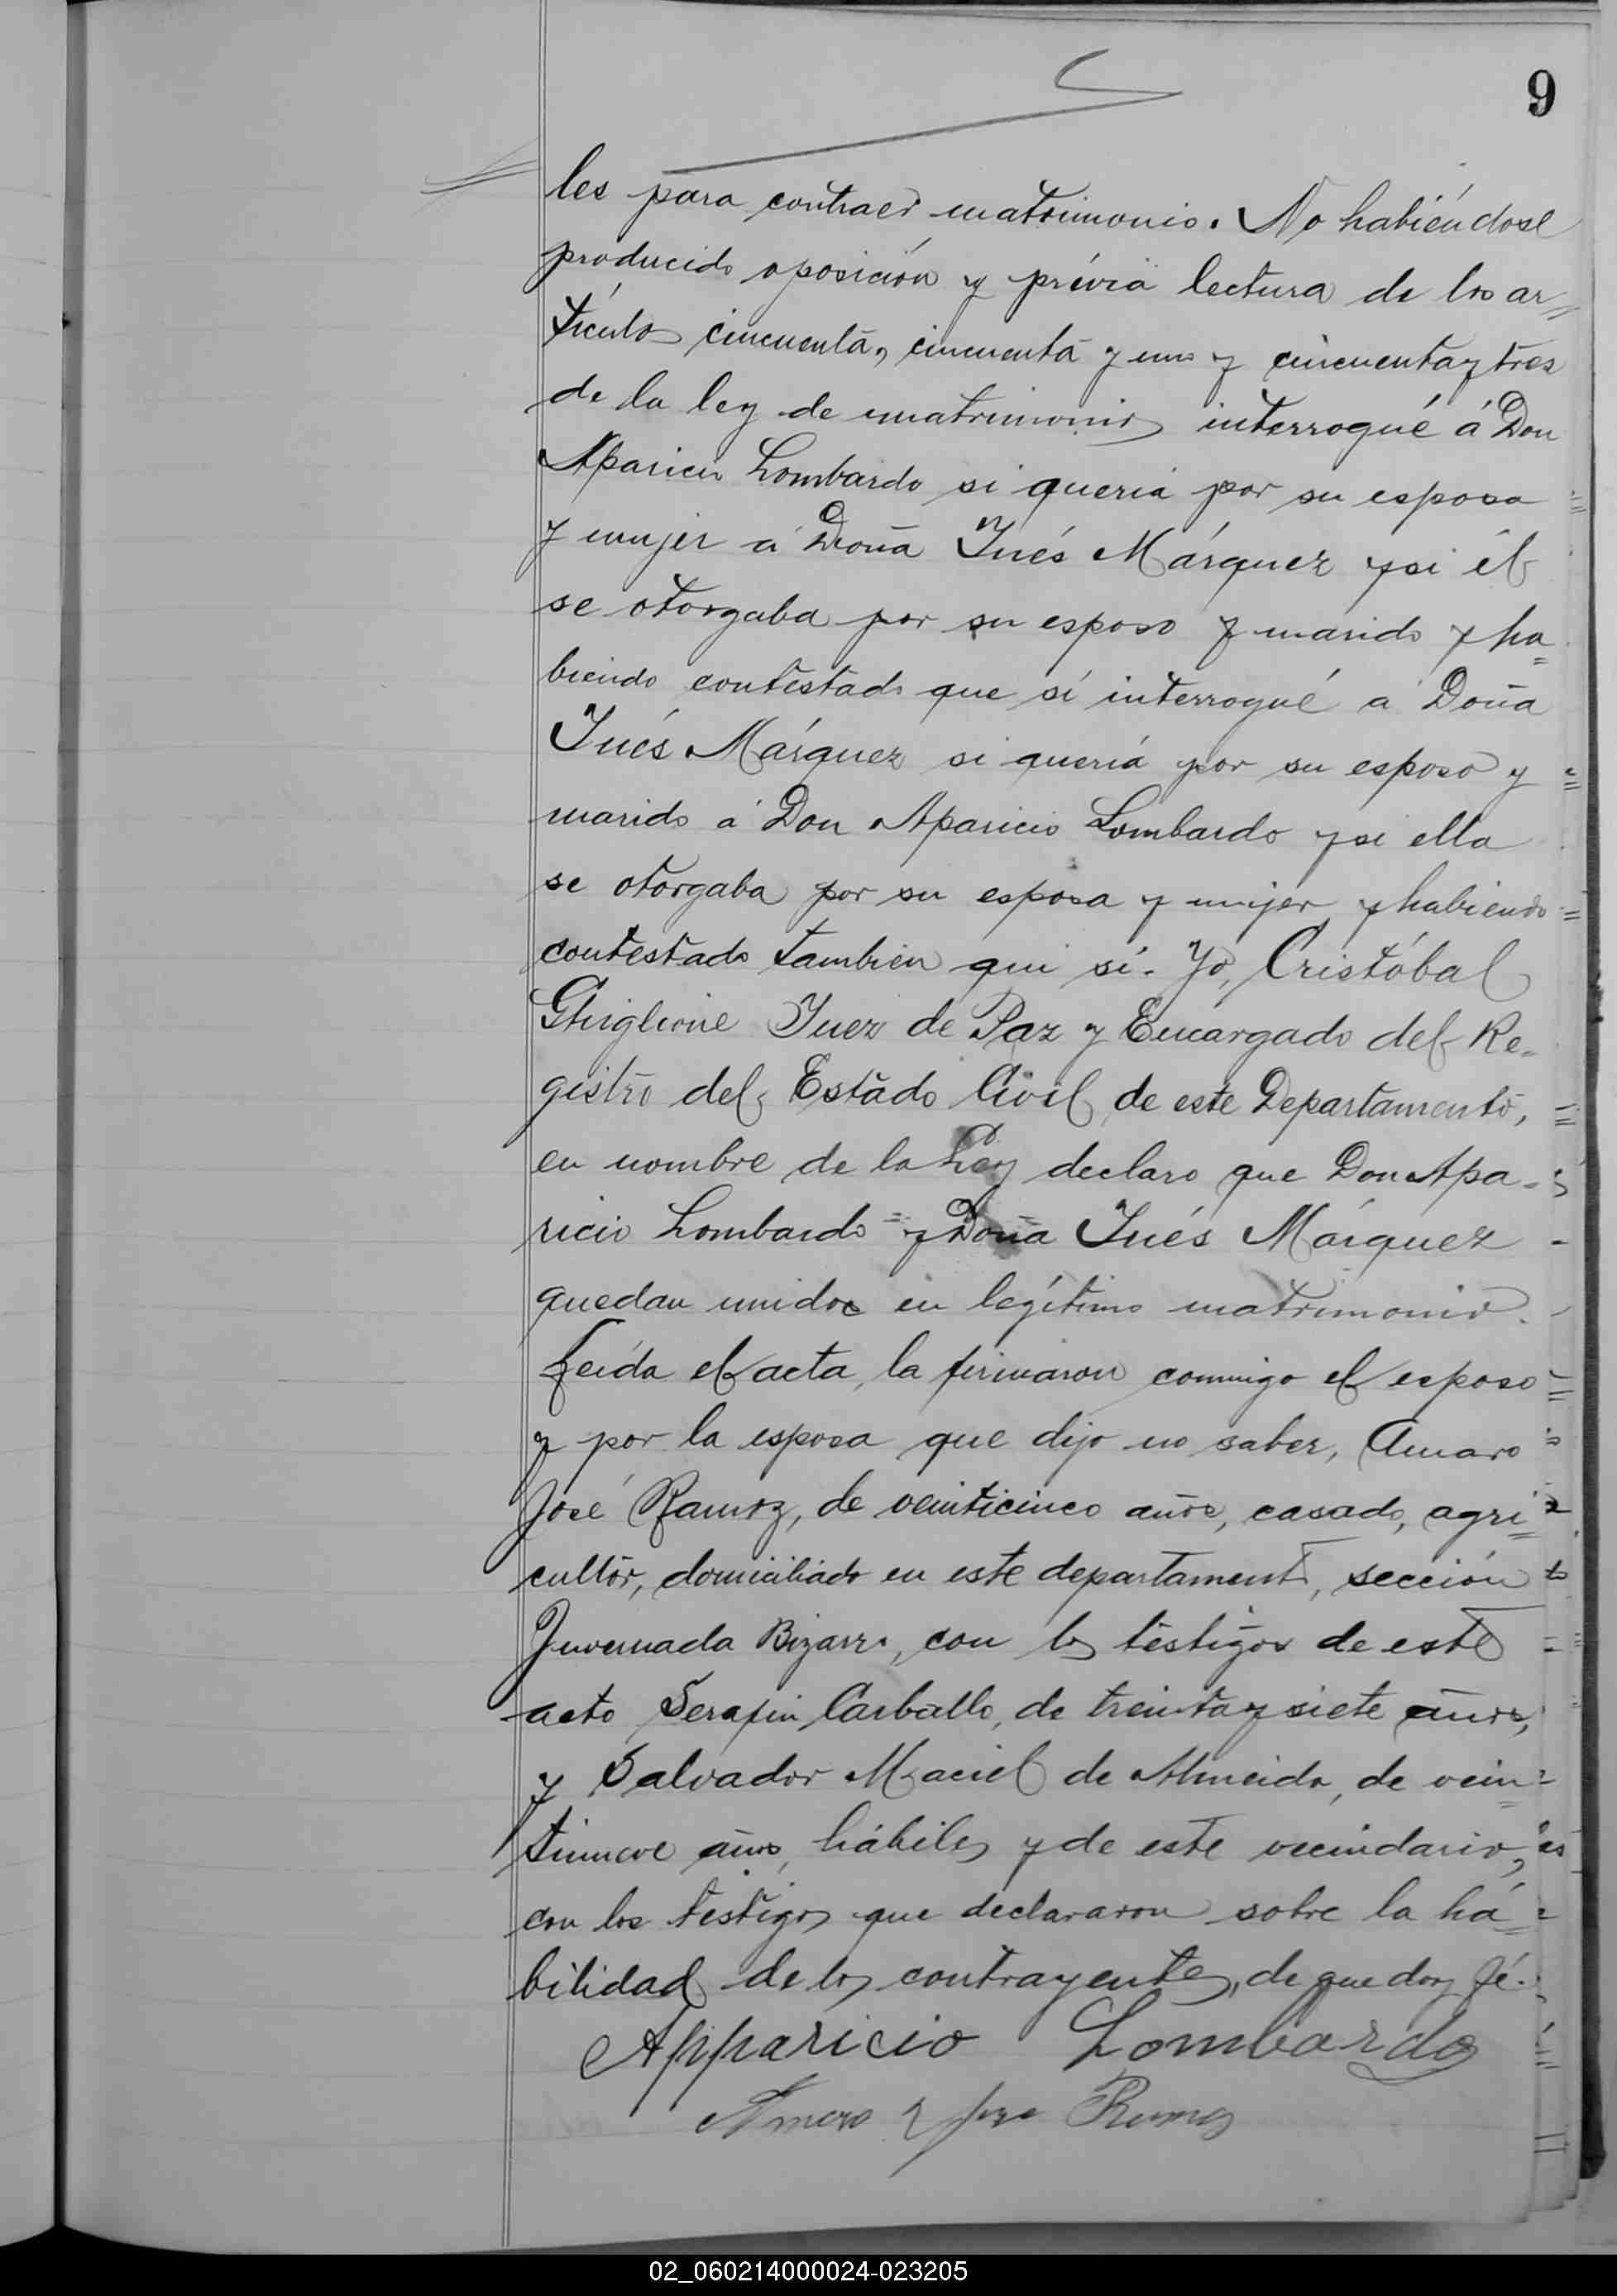 9
les para contraer matrimonio. No habiéndose
producido oposición y prévia lectura de los ar=
tículos cincuenta, cincuenta y uno y cincuenta y tres
de la ley de matrimonio interrogué á Don
Aparicio Lombardo si queria por su esposa
y mujer á Doña Inés Márquez y si él
se otorgaba por su esposo y marido y ha=
biendo contestado que sí interrogué a Doña
Inés Márquez si quería por su esposo y
marido á Don Aparicio Lombardo y si ella
se otorgaba por su esposa y mujer y habiendo
contestado tambien que sí. Yo, Cristóbal
Ghiglione Juez de Paz y Encargado del Re=
gistro del Estado Civil de este Departamento,
en nombre de la Ley declaro que Don Apa=
ricio Lombardo y Doña Inés Márquez
quedan unidos en legítimo matrimonio.
Leída el acta, la firmaron conmigo el esposo
y por la esposa que dijo no saber, Amaro
José Ramoz, de veinticinco años, casado, agri=
cultor, domiciliado en este departamento, sección
Invernada Bizarro, con los testigos de este
acto Serafin Carballo, de treinta y siete años,
y Salvador Maciel de Almeida, de vein=
tinueve años, hábiles y de este vecindario,
con los testigos que declararon sobre la há=
bilidad de los contrayentes, de que doy fé.
Apparicio Lombardo
02_060214000024-023205